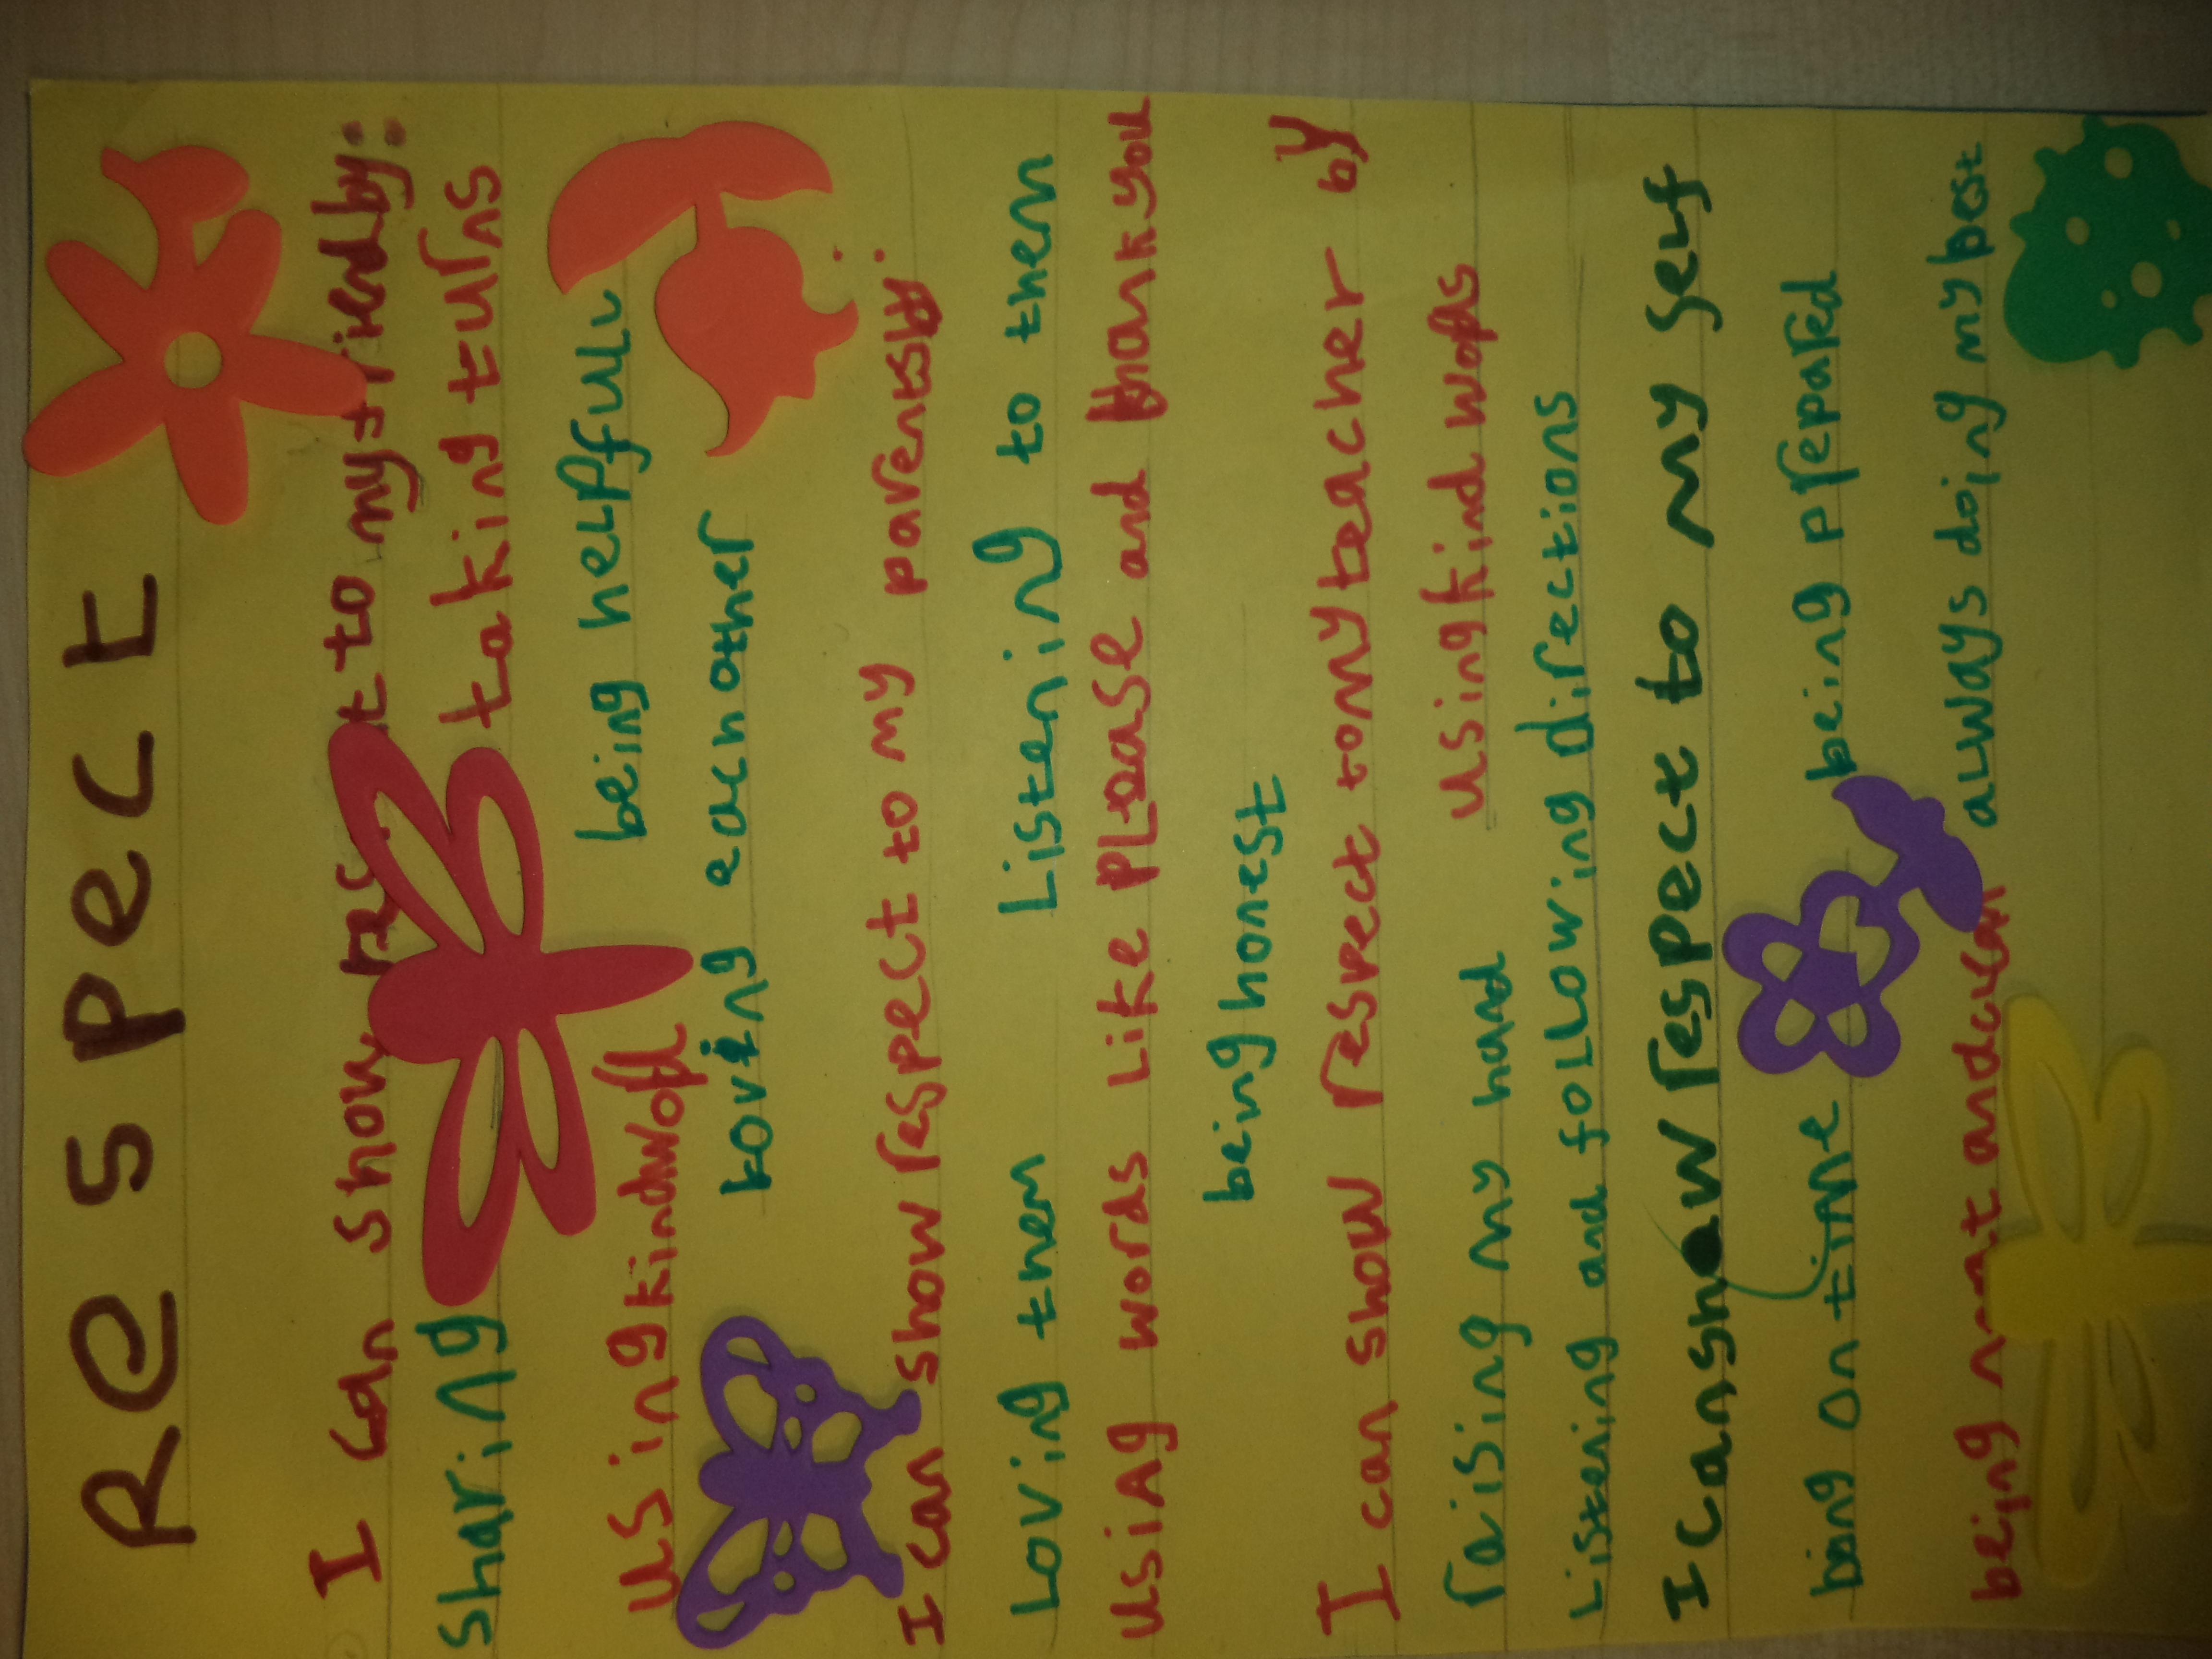 Respect
I can show to my friend by:
sharing taking turns
using kind being helpfull
loving each other
I can show respect to my parents:
Loving them Listening to them
using words Like PLease and thank you
being honest
I can show respect to my teacher by
raising my hand using kind words
Listening and following directions
I can show respect to my self
being on time being prepared
being and always doing my best